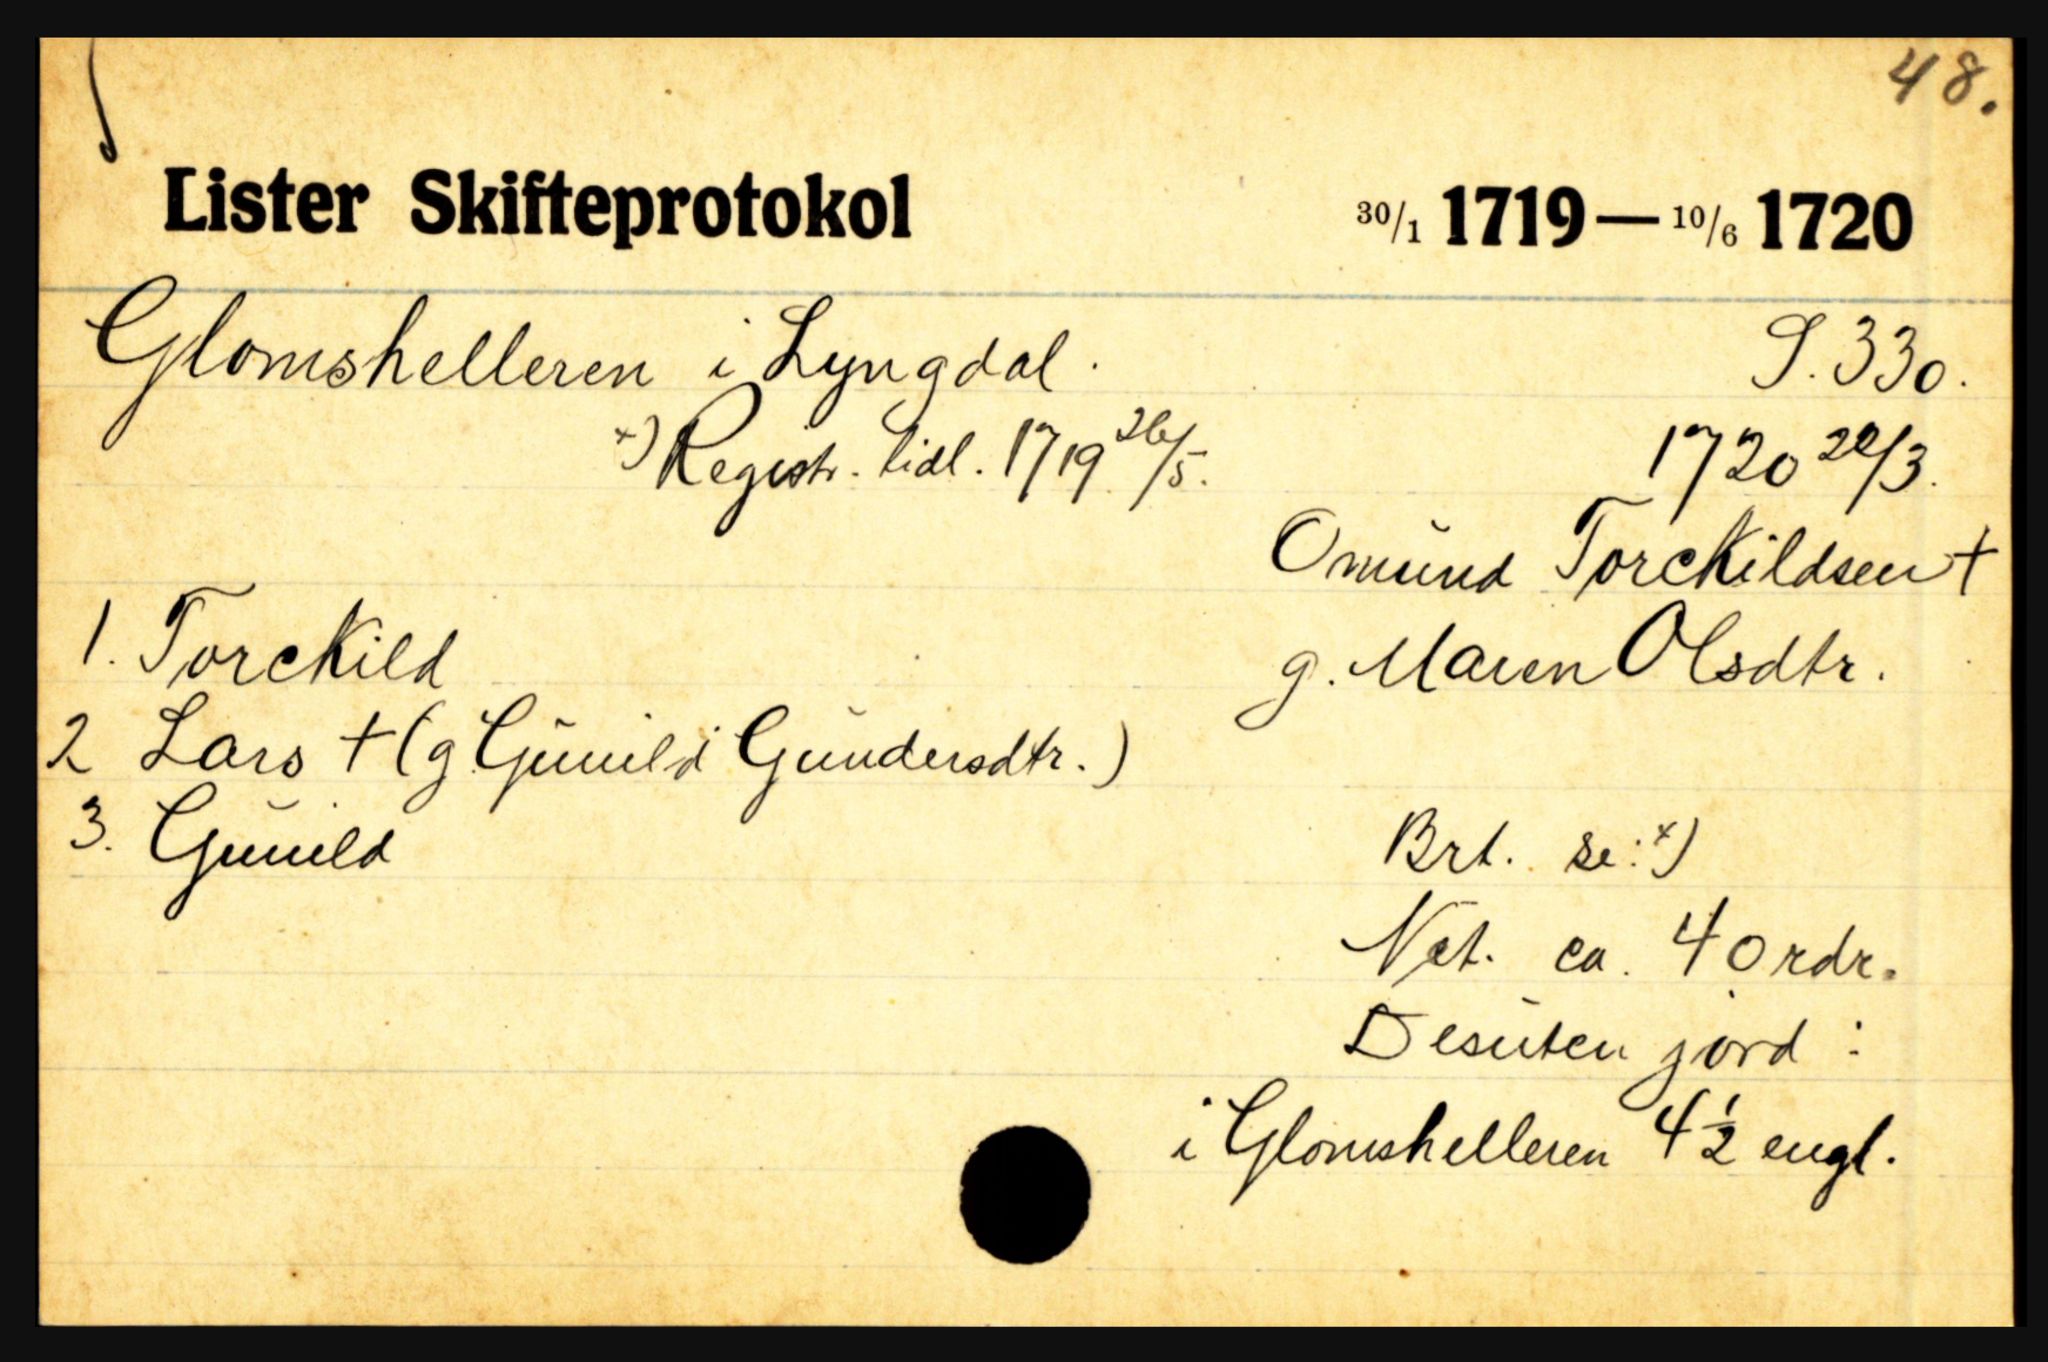 48.
Lister Skifteprotokol 30/1 1719 — 10/6 1720
Glomshelleren i Lyngdal. S. 330.
x) Registr. tidl. 1719 26/5. 1720 20/3.
Omund Torckildsen +
1. Torckild g. Maren Olsdtr.
2 Lars + (g. Gunild Gundersdtr.)
3. Gunild Brt. se: x)
Net. ca. 40 rdr.
Desuten jord:
i Glomshelleren 4 1/2 engl.